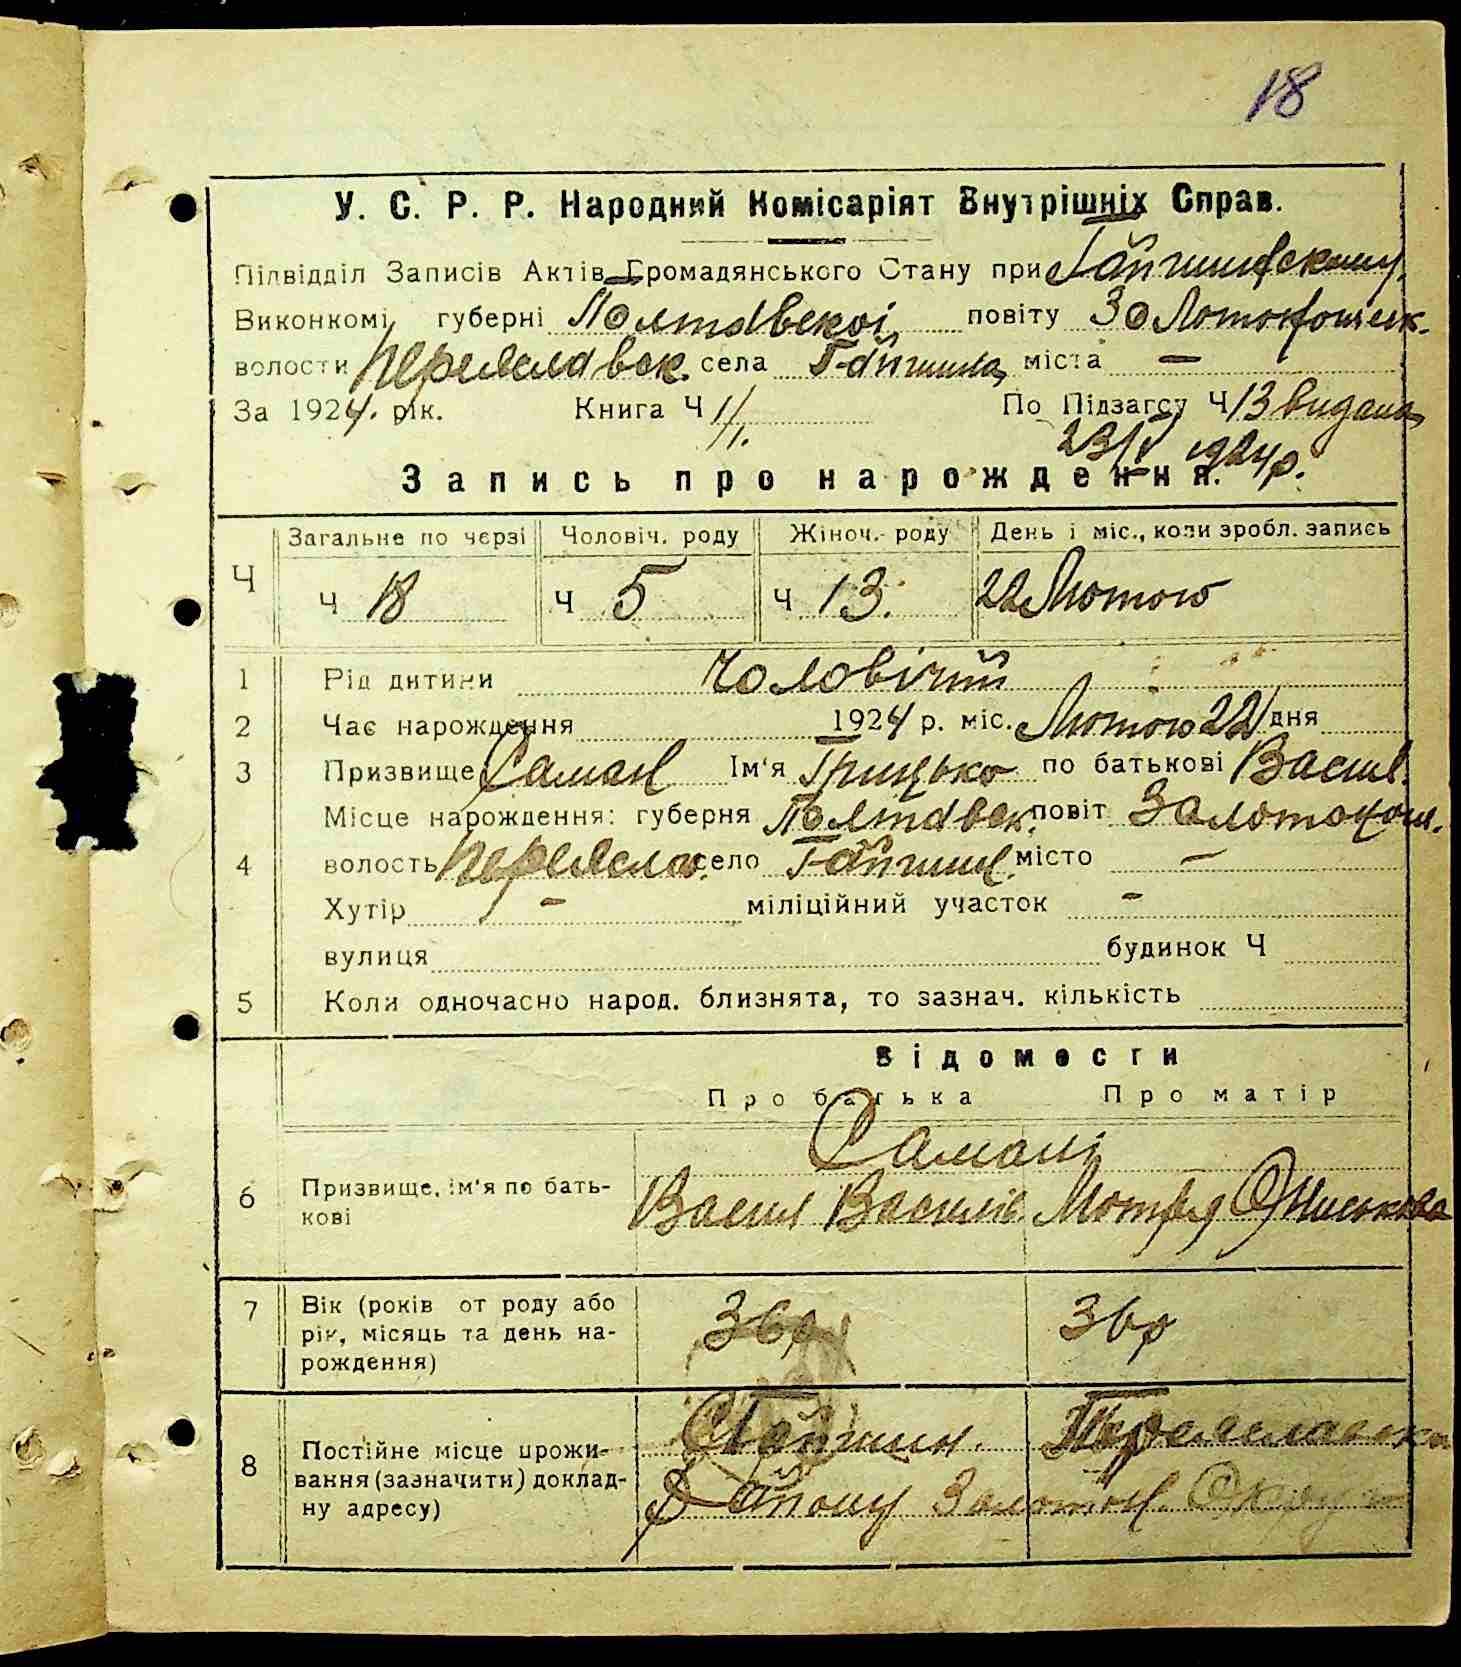 18
У. С. Р. Р. Народний Комісаріят Внутрішніх Справ.
Підвідділ Записів Актів Громадянського Стану при Гайшинському
Виконкомі губерні Полтавської повіту Золотоношськ.
волости Переяславськ. села Гайшина міста —
За 1924. рік. Книга Ч 1/1. По Підзагсу Ч 13 видана
23/V 1924р.
Запись про нарождення.
Ч Загальне по черзі Чоловіч. роду Жіноч. роду День і міс., коли зробл. запись
Ч 18 Ч 5 Ч 13. 22 Лютого
1 Рід дитини Чоловічий
2 Час нарождення 1924 р. міс. Лютого 22 дня
3 Призвище Саман Ім'я Грицько по батькові Васил.
Місце нарождення: губерня Полтавськ. повіт Золотонош.
4 волость Переяслав. село Гайшин. місто —
Хутір — міліційний участок —
вулиця будинок Ч
5 Коли одночасно народ. близнята, то зазнач. кількість
Відомости
Про батька Про матір
Самані
6 Призвище, ім'я по бать-
кові Васил Василів. Мотря Онискова
7 Вік (років от роду або
рік, місяць та день на-
рождення) 36р 36р
8 Постійне місце прожи-
вання (зазначити) доклад-
ну адресу) С Гайшин. Переяславськ
Району Золотон. Округи